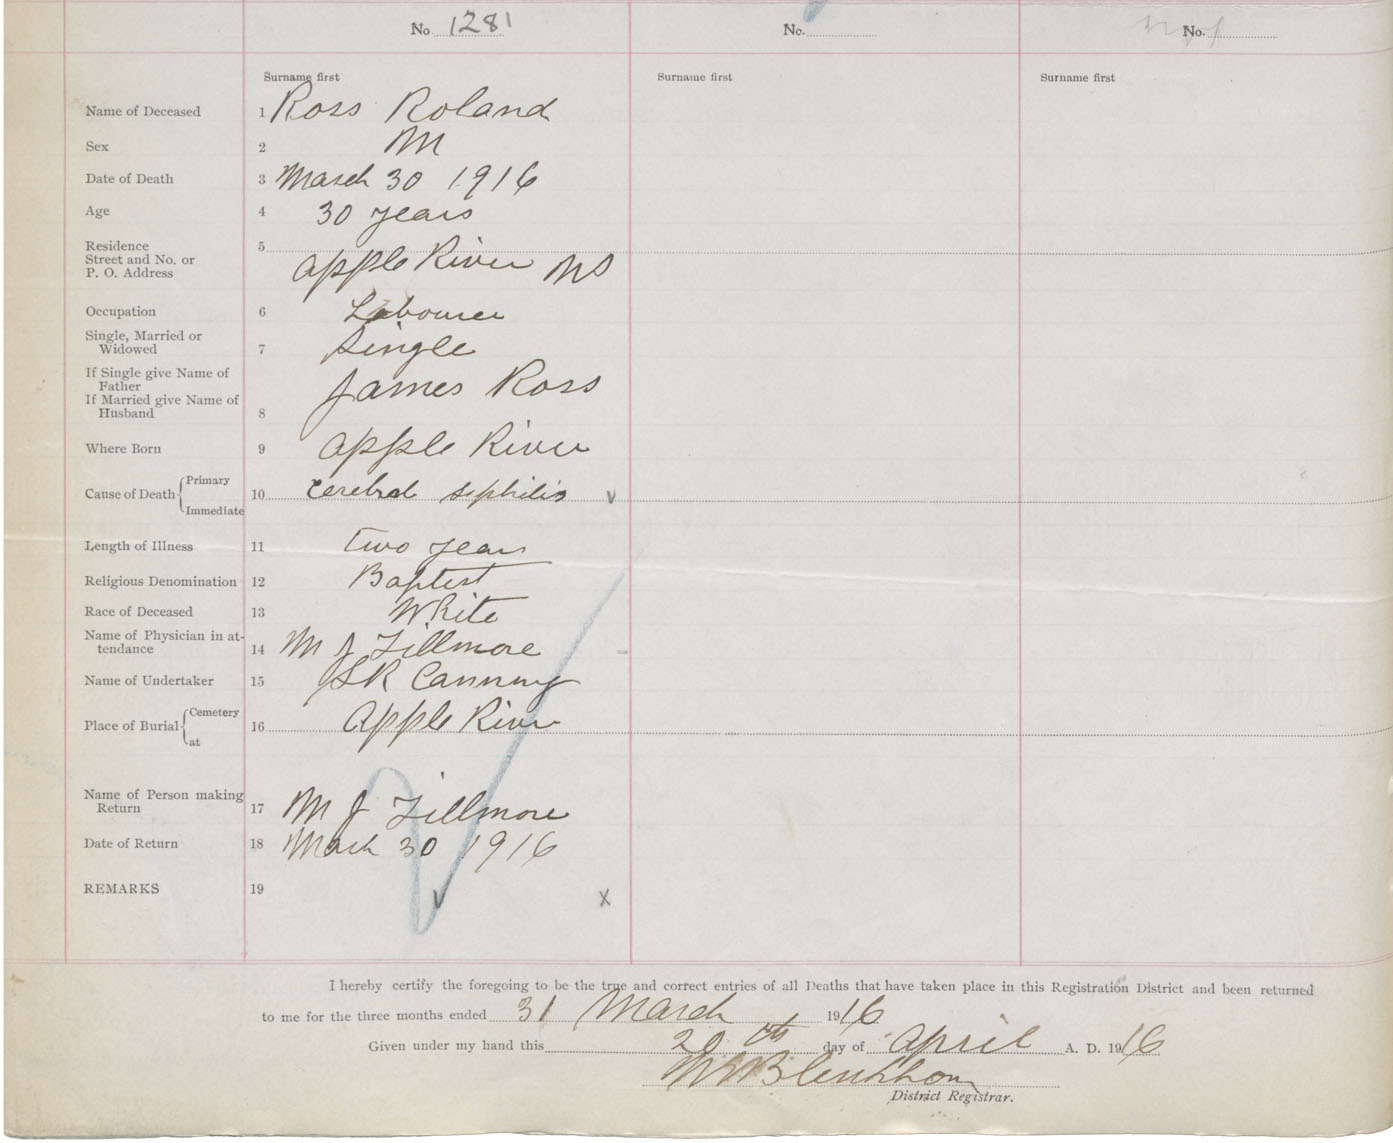 No. 1281 No. No.
Surname first Surname first Surname first
Name of Deceased 1 Ross Roland
Sex 2 M
Date of Death 3 March 30 1916
Age 4 30 years
Residence 5
Street and No. or
P. O. Address Apple River NS
Occupation 6 Labourer
Single, Married or
Widowed 7 Single
If Single give Name of
Father James Ross
If Married give Name of
Husband 8
Where Born 9 Apple River
Primary
Cause of Death 10 cerebral siphilis v
Immediate
Length of Illness 11 Two years
Religious Denomination 12 Baptist
Race of Deceased 13 White
Name of Physician in at-
tendance 14 M J Fillmore
Name of Undertaker 15 Canning
Cemetery
Place of Burial 16 Apple River
at
Name of Person making
Return 17 M J Fillmore
Date of Return 18 March 30 1916
REMARKS 19 v x
I hereby certify the foregoing to be the true and correct entries of all Deaths that have taken place in this Registration District and been returned
to me for the three months ended 31 March 1916
Given under my hand this 20th day of April A. D. 1916
Blenkhorn
District Registrar.